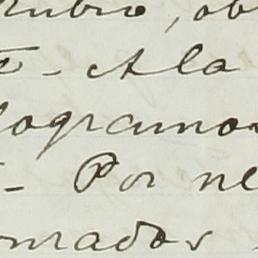 rubio, ob
- A la
logramos
- Por ne
rmados